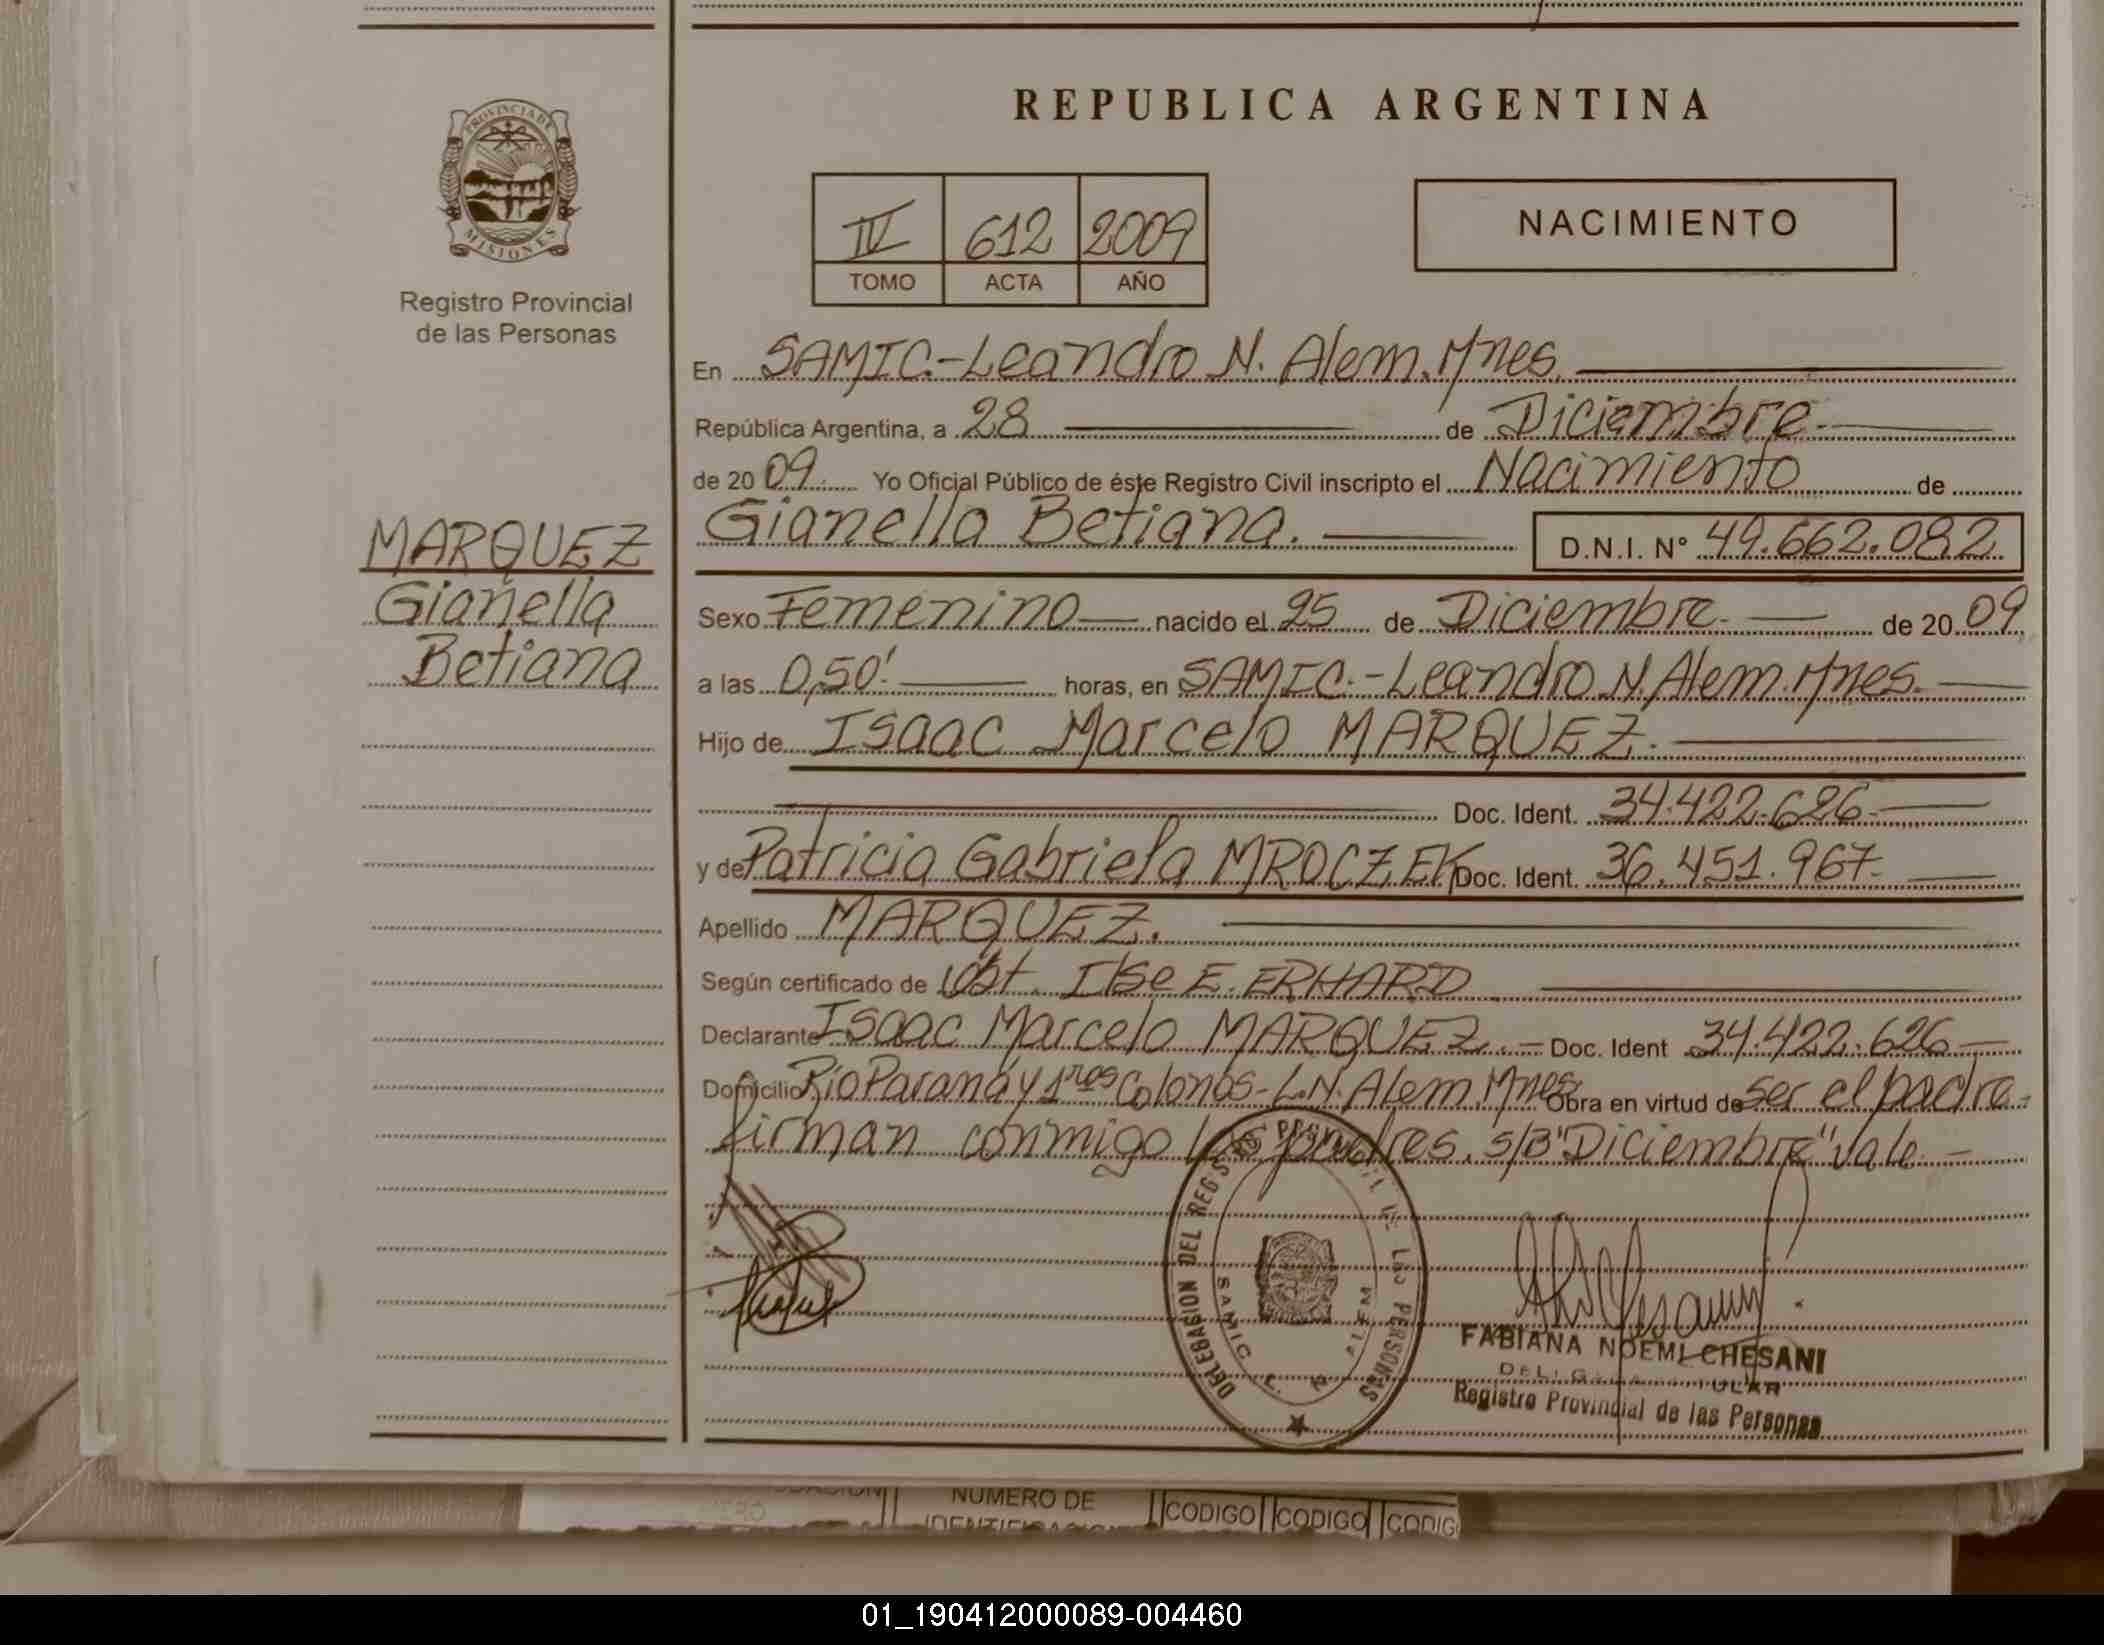 REPUBLICA ARGENTINA
PROVINCIA DE
MISIONES
Registro Provincial
de las Personas
IV 612 2009
TOMO ACTA AÑO
NACIMIENTO
En SAMIC.-Leandro N. Alem. Mnes.
República Argentina, a 28 de Diciembre
de 2009. Yo Oficial Público de éste Registro Civil inscripto el Nacimiento de
Gianella Betiana. D.N.I. N° 49.662.082
MARQUEZ
Gianella
Betiana
Sexo Femenino nacido el 25 de Diciembre. de 2009
a las 0,50'. horas, en SAMIC.-Leandro N. Alem. Mnes.
Hijo de Isaac Marcelo MARQUEZ.
Doc. Ident. 34.422.626.
y de Patricia Gabriela MROCZEK Doc. Ident. 36.451.967.
Apellido MARQUEZ.
Según certificado de Obst. Ilse E. ERHARD
Declarante Isaac Marcelo MARQUEZ. Doc. Ident 34.422.626
Domicilio Río Paraná y 1ros Colonos-L.N. Alem. Mnes. Obra en virtud de ser el padre.
firman conmigo los padres. s/B "Diciembre" vale
DELEGACION DEL REGISTRO PROVINCIAL DE LAS PERSONAS
SAMIC L. N. ALEM
FABIANA NOEMI CHESANI
Registro Provincial de las Personas
NUMERO DE
CODIGO CODIGO
01_190412000089-004460